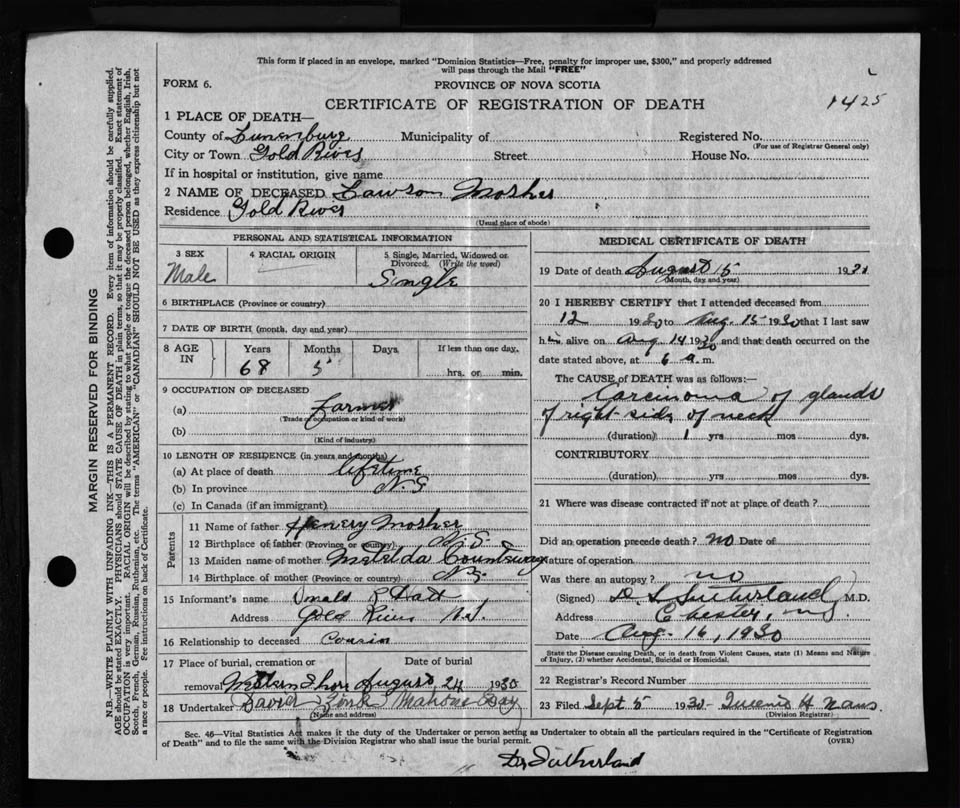 This form if placed in an envelope, marked "Dominion Statistics—Free, penalty for improper use, $300," and properly addressed
will pass through the Mail "FREE"
FORM 6.
PROVINCE OF NOVA SCOTIA
1425
CERTIFICATE OF REGISTRATION OF DEATH
1 PLACE OF DEATH—
County of Lunenburg Municipality of Registered No.
(For use of Registrar General only)
City or Town Gold River Street House No.
If in hospital or institution, give name
2 NAME OF DECEASED Lawson Mosher
Residence Gold River
(Usual place of abode)
PERSONAL AND STATISTICAL INFORMATION
3 SEX
Male
4 RACIAL ORIGIN
5 Single, Married, Widowed or
Divorced. (Write the word)
Single
6 BIRTHPLACE (Province or country)
7 DATE OF BIRTH (month, day and year)
8 AGE IN
Years Months Days If less than one day,
68 5 hrs. or min.
9 OCCUPATION OF DECEASED
(a) Farmer
(Trade or occupation or kind of work)
(b)
(Kind of industry)
10 LENGTH OF RESIDENCE (in years and months)
(a) At place of death lifetime
(b) In province N.S
(c) In Canada (if an immigrant)
Parents
11 Name of father Henery Mosher
12 Birthplace of father (Province or country) N.S.
13 Maiden name of mother Matilda
14 Birthplace of mother (Province or country) NS
15 Informant's name Hatt
Address Gold River N.S.
16 Relationship to deceased Cousin
17 Place of burial, cremation or Date of burial
removal Western Shore August 24 1930
18 Undertaker David Mahone Bay
(Name and address)
MEDICAL CERTIFICATE OF DEATH
19 Date of death August 15 193
(Month, day and year)
20 I HEREBY CERTIFY that I attended deceased from
12 1930 to Aug. 15 1930 that I last saw
him alive on Aug 14 1930 and that death occurred on the
date stated above, at 6 a.m.
The CAUSE of DEATH was as follows:—
Carcinoma of glands
of right side of neck
(duration) 1 yrs mos dys.
CONTRIBUTORY
(duration) yrs. mos. dys.
21 Where was disease contracted if not at place of death?
Did an operation precede death? no Date of
Nature of operation
Was there an autopsy? no
(Signed) Sutherland M.D.
Address, Chester,
Date Aug. 16, 1930
State the Disease causing Death, or in death from Violent Causes, state (1) Means and Nature
of Injury, (2) whether Accidental, Suicidal or Homicidal.
22 Registrar's Record Number
23 Filed Sept 5 1930 H
(Division Registrar)
Sec. 46—Vital Statistics Act makes it the duty of the Undertaker or person acting as Undertaker to obtain all the particulars required in the "Certificate of Registration
of Death" and to file the same with the Division Registrar who shall issue the burial permit. (OVER)
Dr Sutherland
MARGIN RESERVED FOR BINDING
N.B.—WRITE PLAINLY WITH UNFADING INK—THIS IS A PERMANENT RECORD. Every item of information should be carefully supplied.
AGE should be stated EXACTLY. PHYSICIANS should STATE CAUSE OF DEATH in plain terms, so that it may be properly classified. Exact statement of
OCCUPATION is very important. RACIAL ORIGIN will be described by stating to what people or tongue the deceased person belonged, whether English, Irish,
Scotch, French, German, Russian, Ruthenian, etc. The terms "AMERICAN" or "CANADIAN" SHOULD NOT BE USED as they express citizenship but not
a race or people. Fee instructions on back of Certificate.